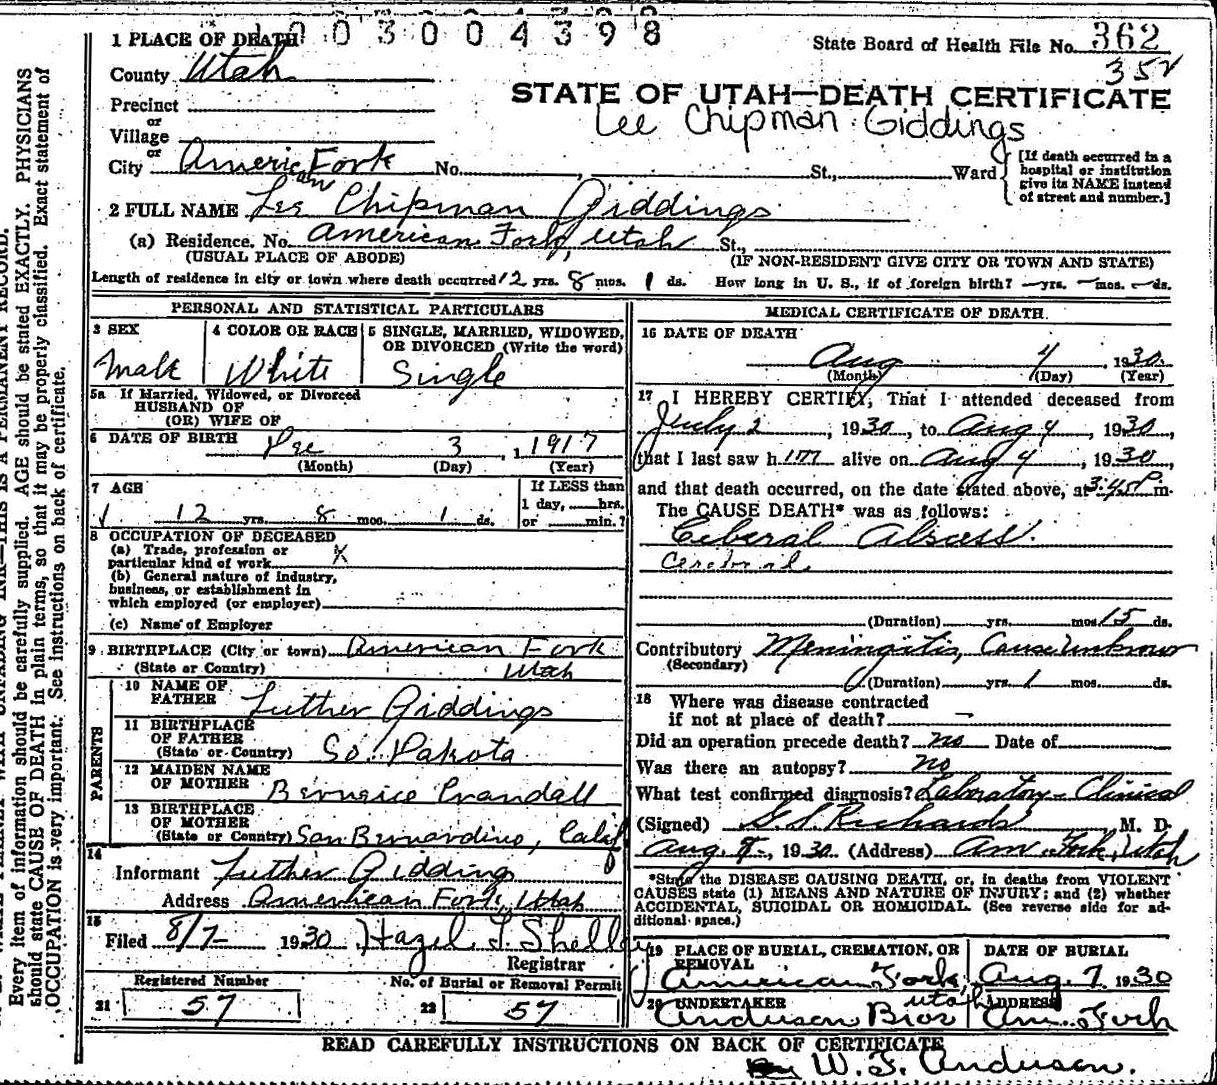 003004398
1 PLACE OF DEATH
State Board of Health File No. 362
County Utah
352
Precinct
STATE OF UTAH—DEATH CERTIFICATE
or
Village
Lee Chipman Giddings
or
City American Fork No. , St., Ward
[If death occurred in a hospital or institution give its NAME instead of street and number.]
2 FULL NAME Lee Chipman Giddings
(a) Residence. No. American Fork, Utah St.,
(USUAL PLACE OF ABODE) (IF NON-RESIDENT GIVE CITY OR TOWN AND STATE)
Length of residence in city or town where death occurred 12 yrs. 8 mos. 1 ds. How long in U. S., if of foreign birth? — yrs. — mos. — ds.
PERSONAL AND STATISTICAL PARTICULARS
3 SEX
Male
4 COLOR OR RACE
White
5 SINGLE, MARRIED, WIDOWED,
OR DIVORCED (Write the word)
Single
5a If Married, Widowed, or Divorced
HUSBAND OF
(OR) WIFE OF
6 DATE OF BIRTH Dec 3, 1917
(Month) (Day) (Year)
7 AGE
12 yrs. 8 mos. 1 ds.
If LESS than
1 day, hrs.
or min.?
8 OCCUPATION OF DECEASED
(a) Trade, profession or
particular kind of work X
(b) General nature of industry,
business, or establishment in
which employed (or employer)
(c) Name of Employer
9 BIRTHPLACE (City or town) American Fork
(State or Country) Utah
PARENTS
10 NAME OF
FATHER Luther Giddings
11 BIRTHPLACE
OF FATHER
(State or Country) So. Dakota
12 MAIDEN NAME
OF MOTHER Bernice Crandall
13 BIRTHPLACE
OF MOTHER
(State or Country) San Bernardino, Calif
14
Informant Luther Giddings
Address American Fork, Utah
15
Filed 8/7 1930 Hazel L. Shelley
Registrar
Registered Number
21 57
No. of Burial or Removal Permit
22 57
MEDICAL CERTIFICATE OF DEATH.
16 DATE OF DEATH
Aug 4, 1930
(Month) (Day) (Year)
17 I HEREBY CERTIFY, That I attended deceased from
July 2, 1930, to Aug 4, 1930,
that I last saw him alive on Aug 4, 1930,
and that death occurred, on the date stated above, at 3:45 P m.
The CAUSE DEATH* was as follows:
Ceberal Abscess.
Cerebral
(Duration) yrs. mos. 15 ds.
Contributory Meningitis, Cause unknown
(Secondary)
(Duration) yrs. 1 mos. ds.
18 Where was disease contracted
if not at place of death? —
Did an operation precede death? no Date of
Was there an autopsy? no
What test confirmed diagnosis? Laboratory - Clinical
(Signed) G. S. Richards M. D.
Aug. 1930. (Address) Am. Fork, Utah
*State the DISEASE CAUSING DEATH, or, in deaths from VIOLENT
CAUSES state (1) MEANS AND NATURE OF INJURY; and (2) whether
ACCIDENTAL, SUICIDAL OR HOMICIDAL. (See reverse side for ad-
ditional space.)
19 PLACE OF BURIAL, CREMATION, OR
REMOVAL
American Fork, Utah
DATE OF BURIAL
Aug. 7 1930
20 UNDERTAKER
Anderson Bros
ADDRESS
Am. Fork
READ CAREFULLY INSTRUCTIONS ON BACK OF CERTIFICATE
By W. F. Anderson.
THIS IS A PERMANENT RECORD.
Every item of information should be carefully supplied. AGE should be stated EXACTLY. PHYSICIANS
should state CAUSE OF DEATH in plain terms, so that it may be properly classified. Exact statement of
OCCUPATION is very important. See instructions on back of certificate.